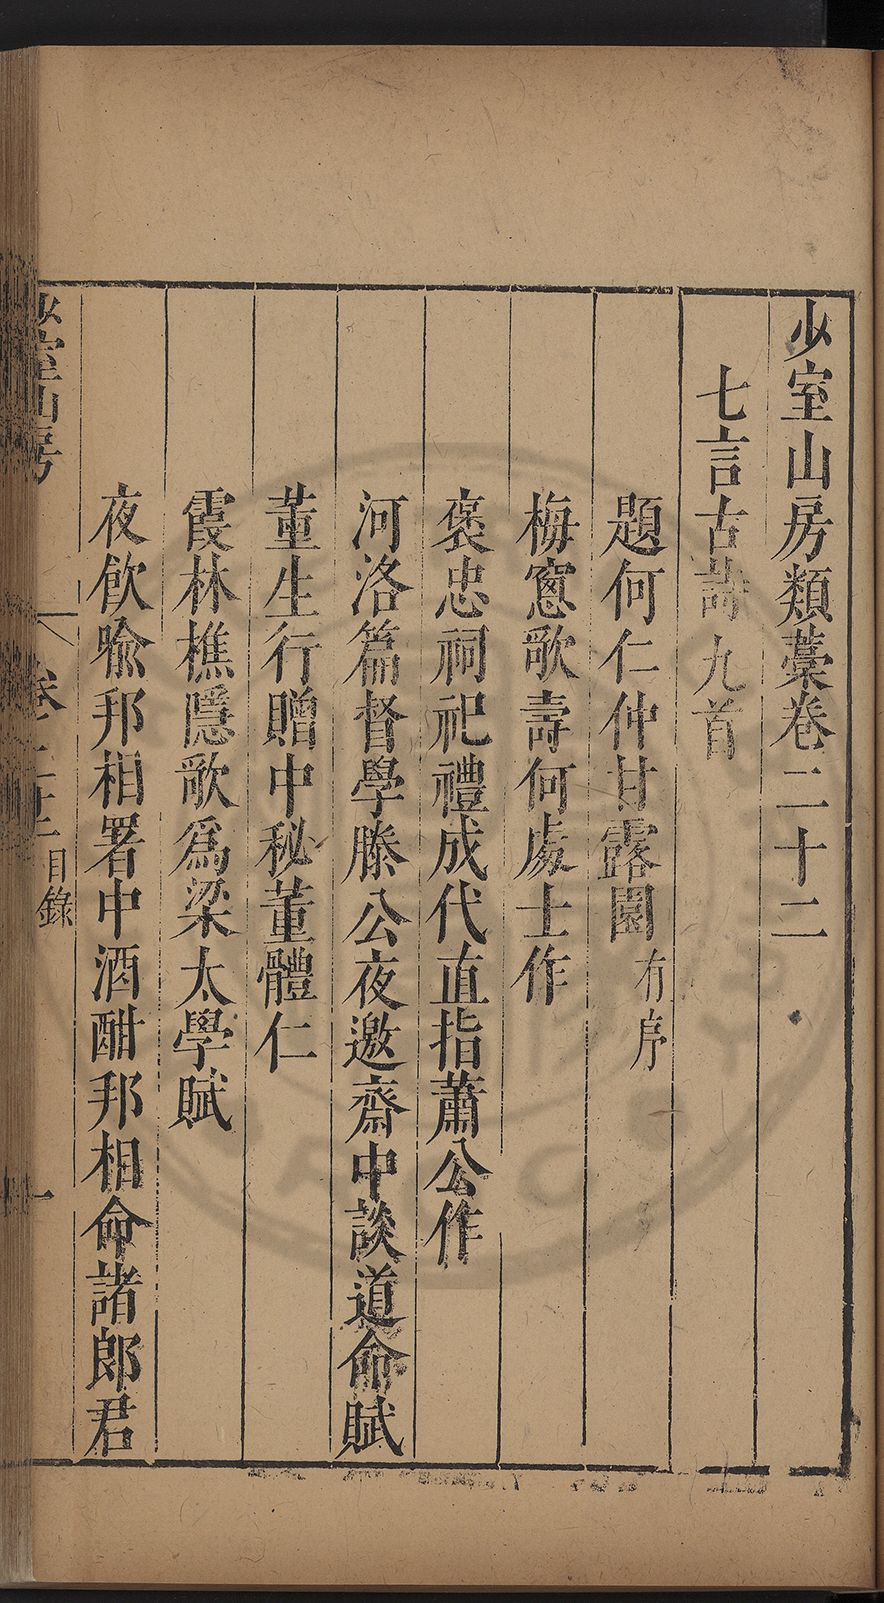 少室山房類藁卷二十二
七言古詩九首
題何仁仲甘露園有序
梅窻歌壽何處士作
褒忠祠祀禮成代直指蕭公作
河洛篇督學滕公夜邀齋中談道命賦
董生行贈中秘董體仁
霞林樵隱歌爲梁太學賦
夜飲喩邦相署中酒酣邦相命諸郎君
少室山房 卷二十二目錄 一